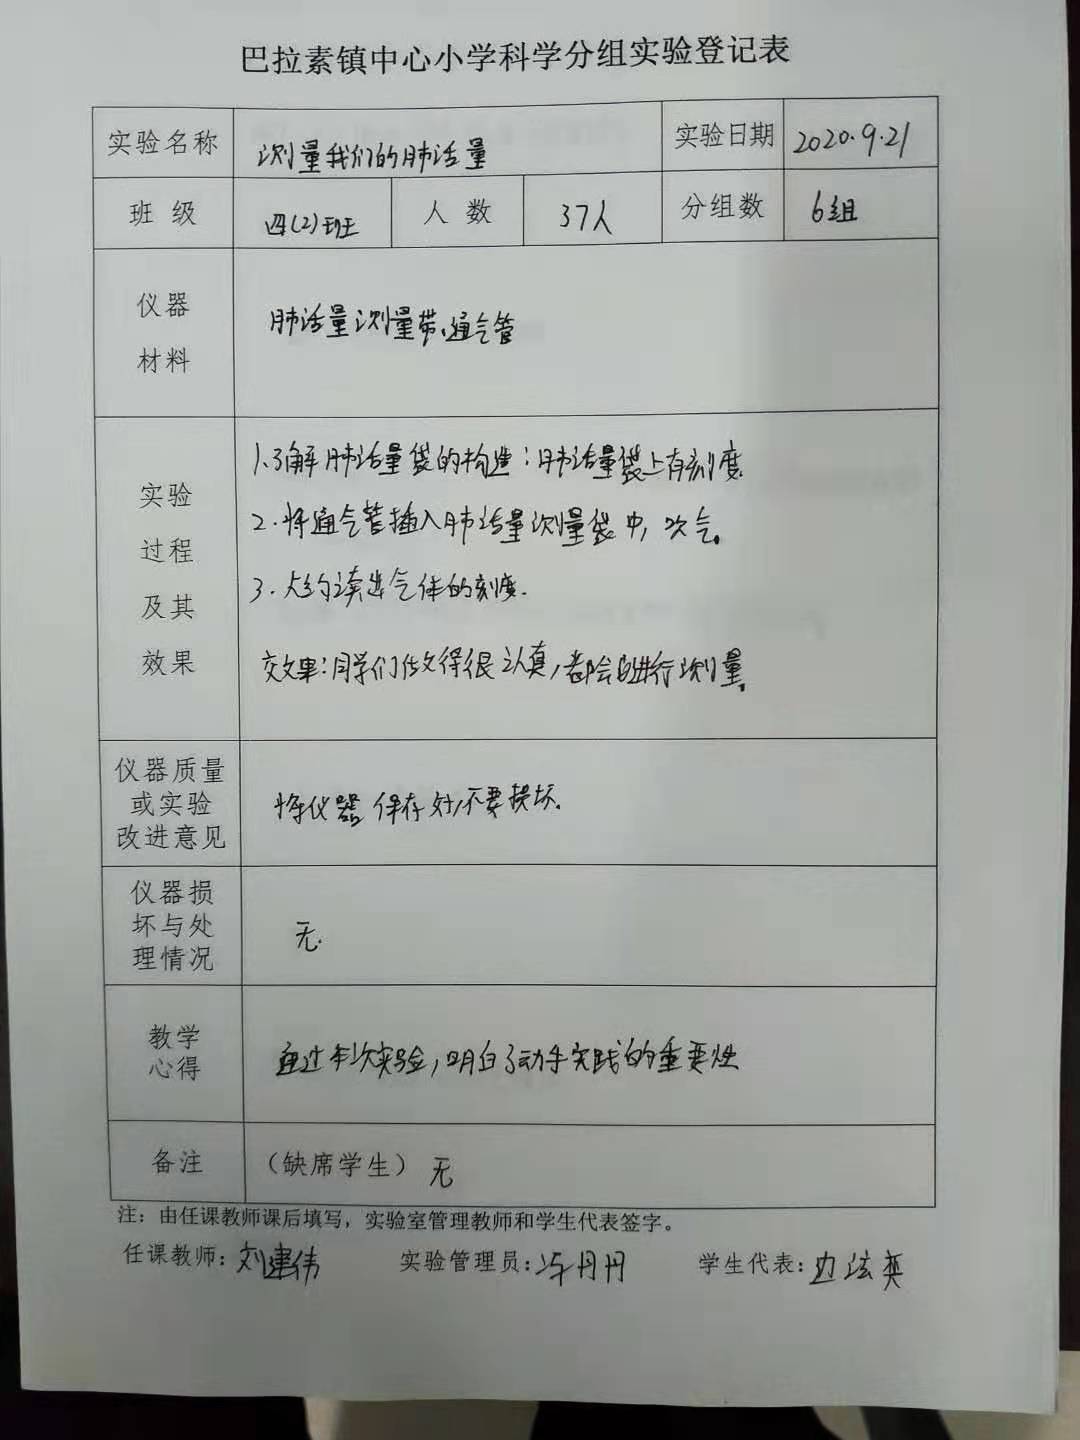 巴拉素镇中心小学科学分组实验登记表
实验名称 测量我们的肺活量 实验日期 2020.9.21
班级 四(2)班 人数 37人 分组数 6组
仪器
材料
肺活量测量带、通气管
实验
过程
及其
效果
1.了解肺活量袋的构造:肺活量袋上有刻度
2.将通气管插入肺活量测量袋中,吹气。
3.大约读出气体的刻度.
效果:同学们做得很认真,都会进行测量。
仪器质量
或实验
改进意见
将仪器保存好,不要损坏.
仪器损
坏与处
理情况
无.
教学
心得
通过本次实验,明白了动手实践的重要性
备注 (缺席学生) 无
注:由任课教师课后填写,实验室管理教师和学生代表签字。
任课教师:刘建伟 实验管理员:丹丹 学生代表:边泫奕